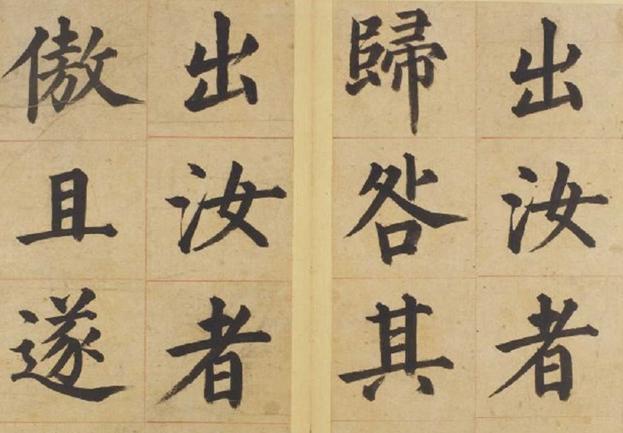 出汝者
歸咎其
出汝者
傲且遂